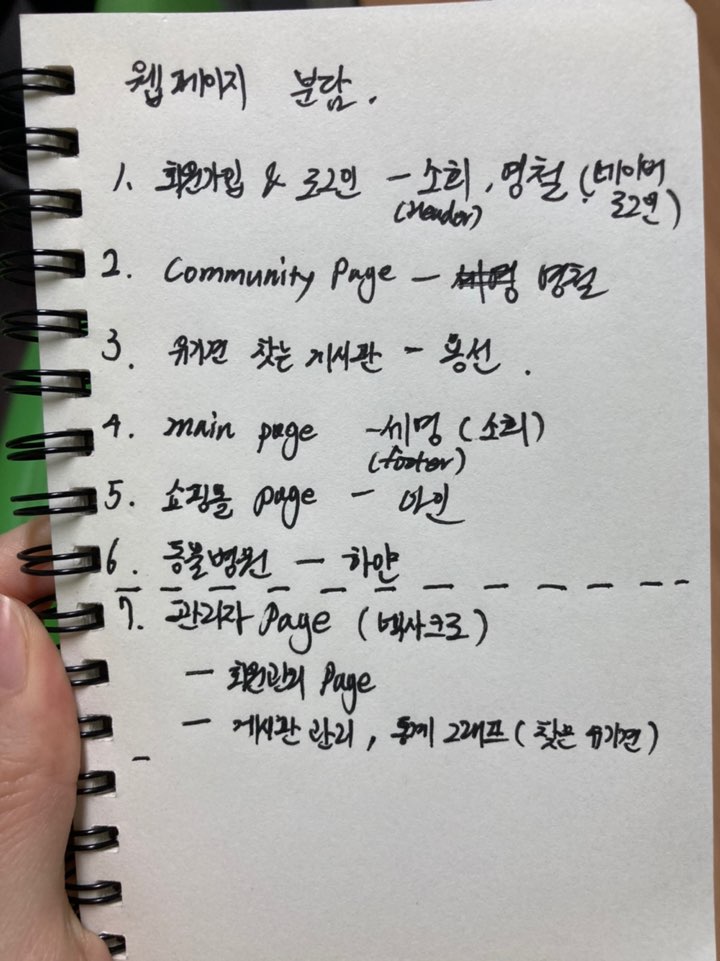 웹페이지 분담.
1. 회원가입 & 로그인 - 소희, 명철 (네이버
(header) 로그인)
2. Community Page - 명철
3. 유기견 찾는 게시판 - 용선.
4. main page - 세명 (소희)
(footer)
5. 쇼핑몰 page - 아인
6. 동물병원 - 하얀
7. 관리자 Page (넥사크로)
- 회원관리 Page
- 게시판 관리, 통계 그래프 (찾은 유기견)
-